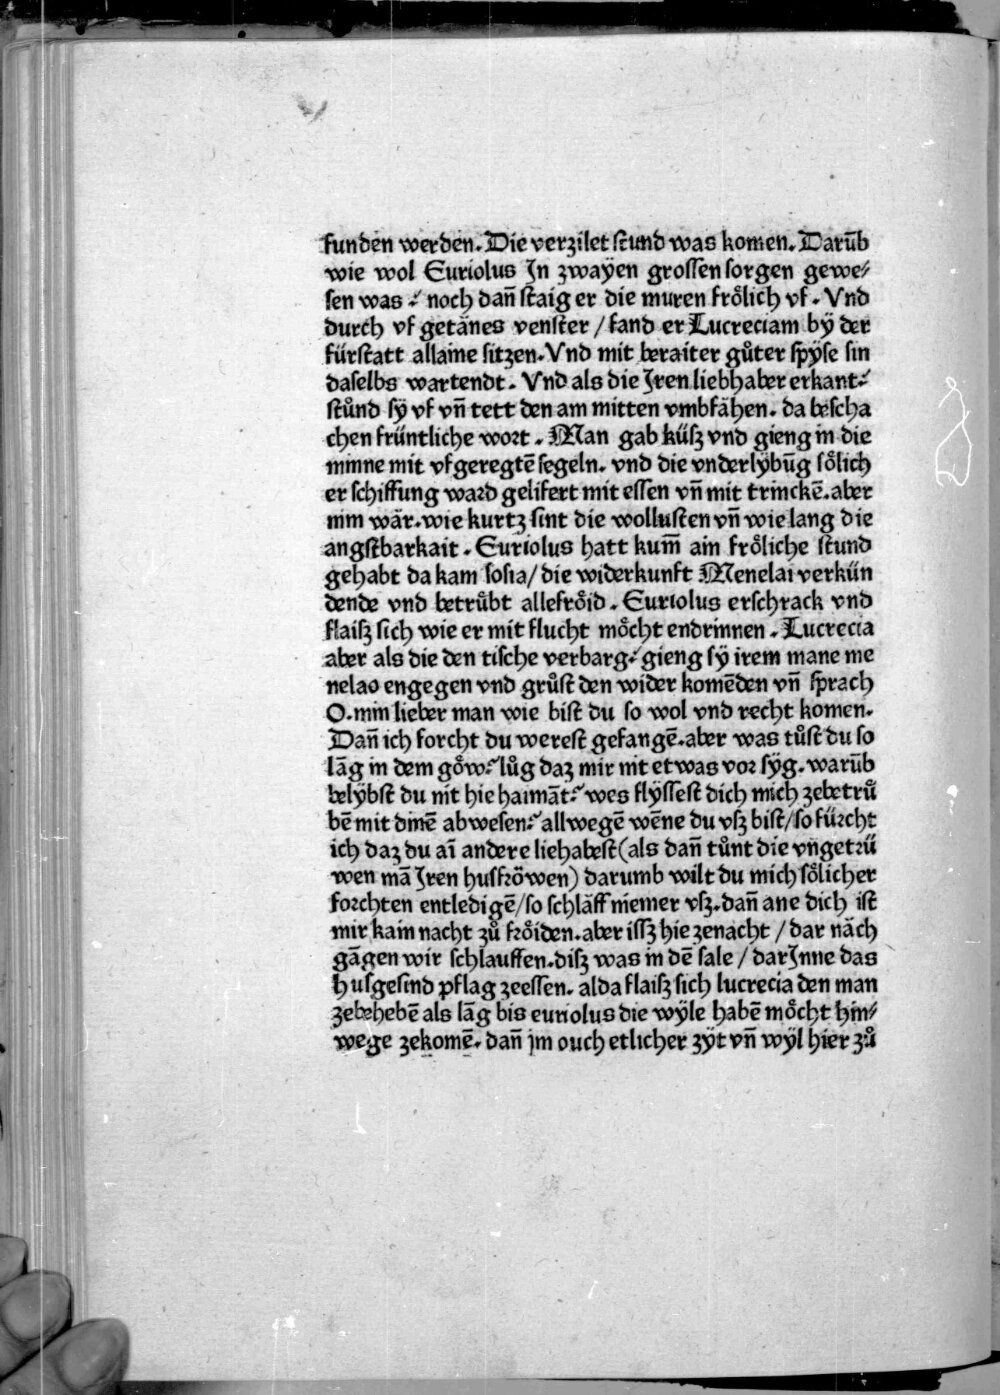 funden werden. Die verzilet stund was komen. Darūb
wie wol Euriolus Jn zwayen grossen sorgen gewe⸗
sen was ⸵ noch dañ staig er die muren froͤlich vf. Vnd
durch vf getänes venster / fand er Lucreciam bÿ der
fürstatt allaine sitzen. Vnd mit beraiter gůter spÿse sin
daselbs wartendt. Vnd als die Jren liebhaber erkant⸵
stůnd sÿ vf vñ tett den am mitten vmbfähen. da bescha
chen früntliche wort. Man gab küsz vnd gieng in die
minne mit vfgeregtē segeln. vnd die vnderlybūg soͤlich
er schiffung ward gelifert mit essen vñ mit trinckē. aber
nim wär. wie kurtz sint die wollusten vñ wie lang die
angstbarkait. Euriolus hatt kum̄ ain froͤliche stund
gehabt da kam sosia / die widerkunft Menelai verkün
dende vnd betruͤbt allefroͤid. Euriolus erschrack vnd
flaisz sich wie er mit flucht moͤcht endrinnen. Lucrecia
aber als die den tische verbarg⸵ gieng sÿ irem mane me
nelao engegen vnd gruͤst den wider komēden vñ sprach
O. min lieber man wie bist du so wol vnd recht komen.
Dañ ich forcht du werest gefangē. aber was tůst du so
lāg in dem goͤw⸵ lůg daz mir nit etwas vor sÿg. warūb
belÿbst du nit hie haimāt⸵ wes flÿssest dich mich zebetruͤ
bē mit dinē abwesen⸵ allwegē wēne du vsz bist / so fürcht
ich daz du aī andere liehabest (als dañ tůnt die vñgetrü
wen mā Jren husfröwen) darumb wilt du mich soͤlicher
forchten entledigē / so schläff niemer vsz. dañ ane dich ist
mir kain nacht zů froͤiden. aber issz hie zenacht / dar näch
gāgen wir schlauffen. disz was in dē sale / darJnne das
husgesind pflag zeessen. alda flaisz sich lucrecia den man
zebehebē als lāg bis euriolus die wÿle habē moͤcht hin⸗
wege zekomē. dañ jm ouch etlicher zÿt vñ wÿl hier zů